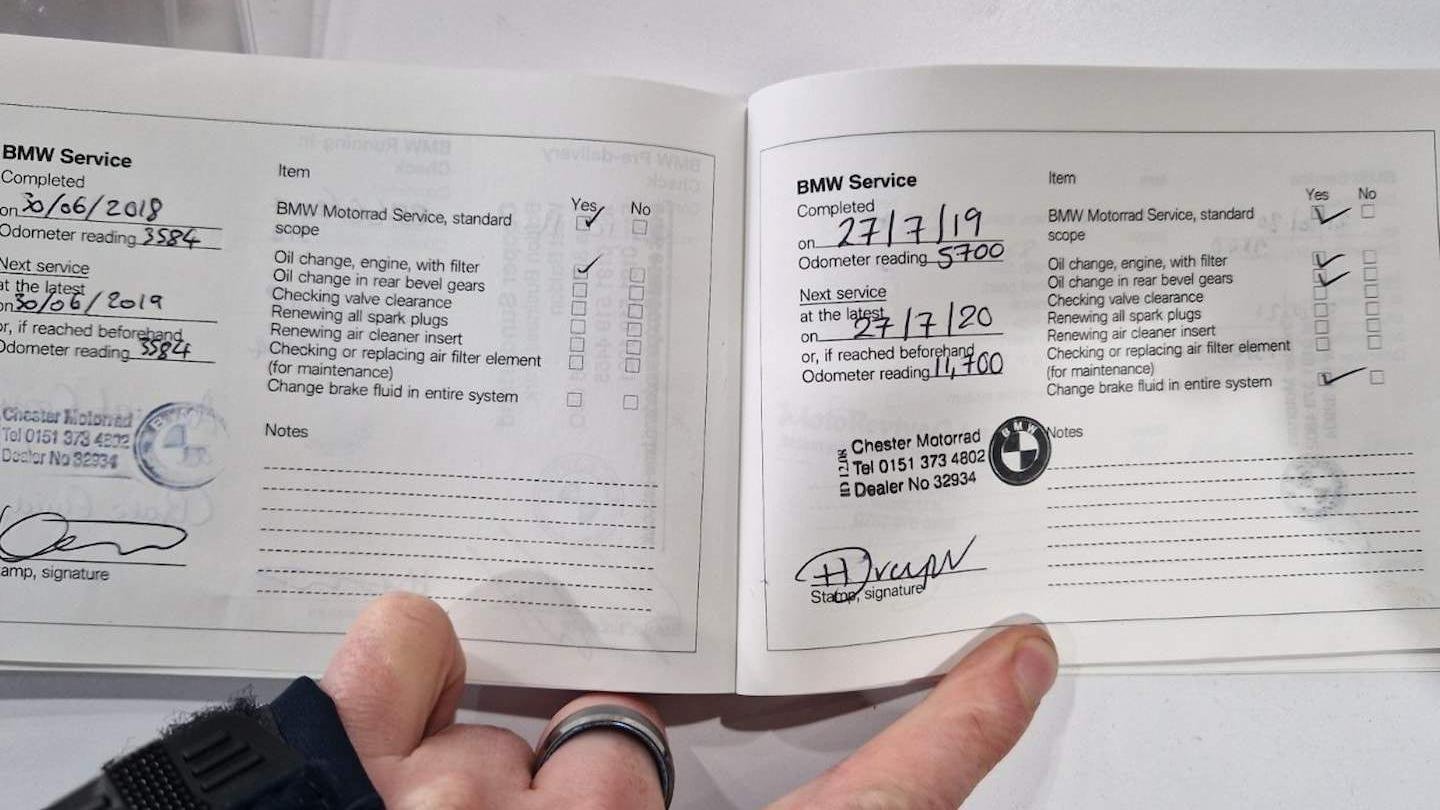 BMW Service
Completed
on 30/06/2018
Odometer reading 3584
Next service
at the latest
on 30/06/2019
or, if reached beforehand
Odometer reading
Chester Motorrad
Tel 0151 373 4802
Dealer No 32934
amp, signature
Item
Yes No
BMW Motorrad Service, standard
scope
Oil change, engine, with filter
Oil change in rear bevel gears
Checking valve clearance
Renewing all spark plugs
Renewing air cleaner insert
Checking or replacing air filter element
(for maintenance)
Change brake fluid in entire system
Notes
BMW Service
Completed
on 27/7/19
Odometer reading 5700
Next service
at the latest
on 27/7/20
or, if reached beforehand
Odometer reading 11,700
Chester Motorrad
Tel 0151 373 4802
Dealer No 32934
BMW
Stamp, signature
Item
Yes No
BMW Motorrad Service, standard
scope
Oil change, engine, with filter
Oil change in rear bevel gears
Checking valve clearance
Renewing all spark plugs
Renewing air cleaner insert
Checking or replacing air filter element
(for maintenance)
Change brake fluid in entire system
Notes